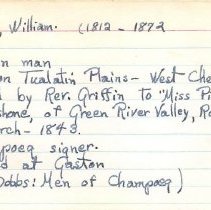 , William. (1812 - 1872
n man
on Tualatin Plains - West Che
d by Rev. Griffin to "Miss Pi
shone, of Green River Valley, Ro
rch - 1843.
poeg signer.
d at Gaston
Dobbs: Men of Champoeg)